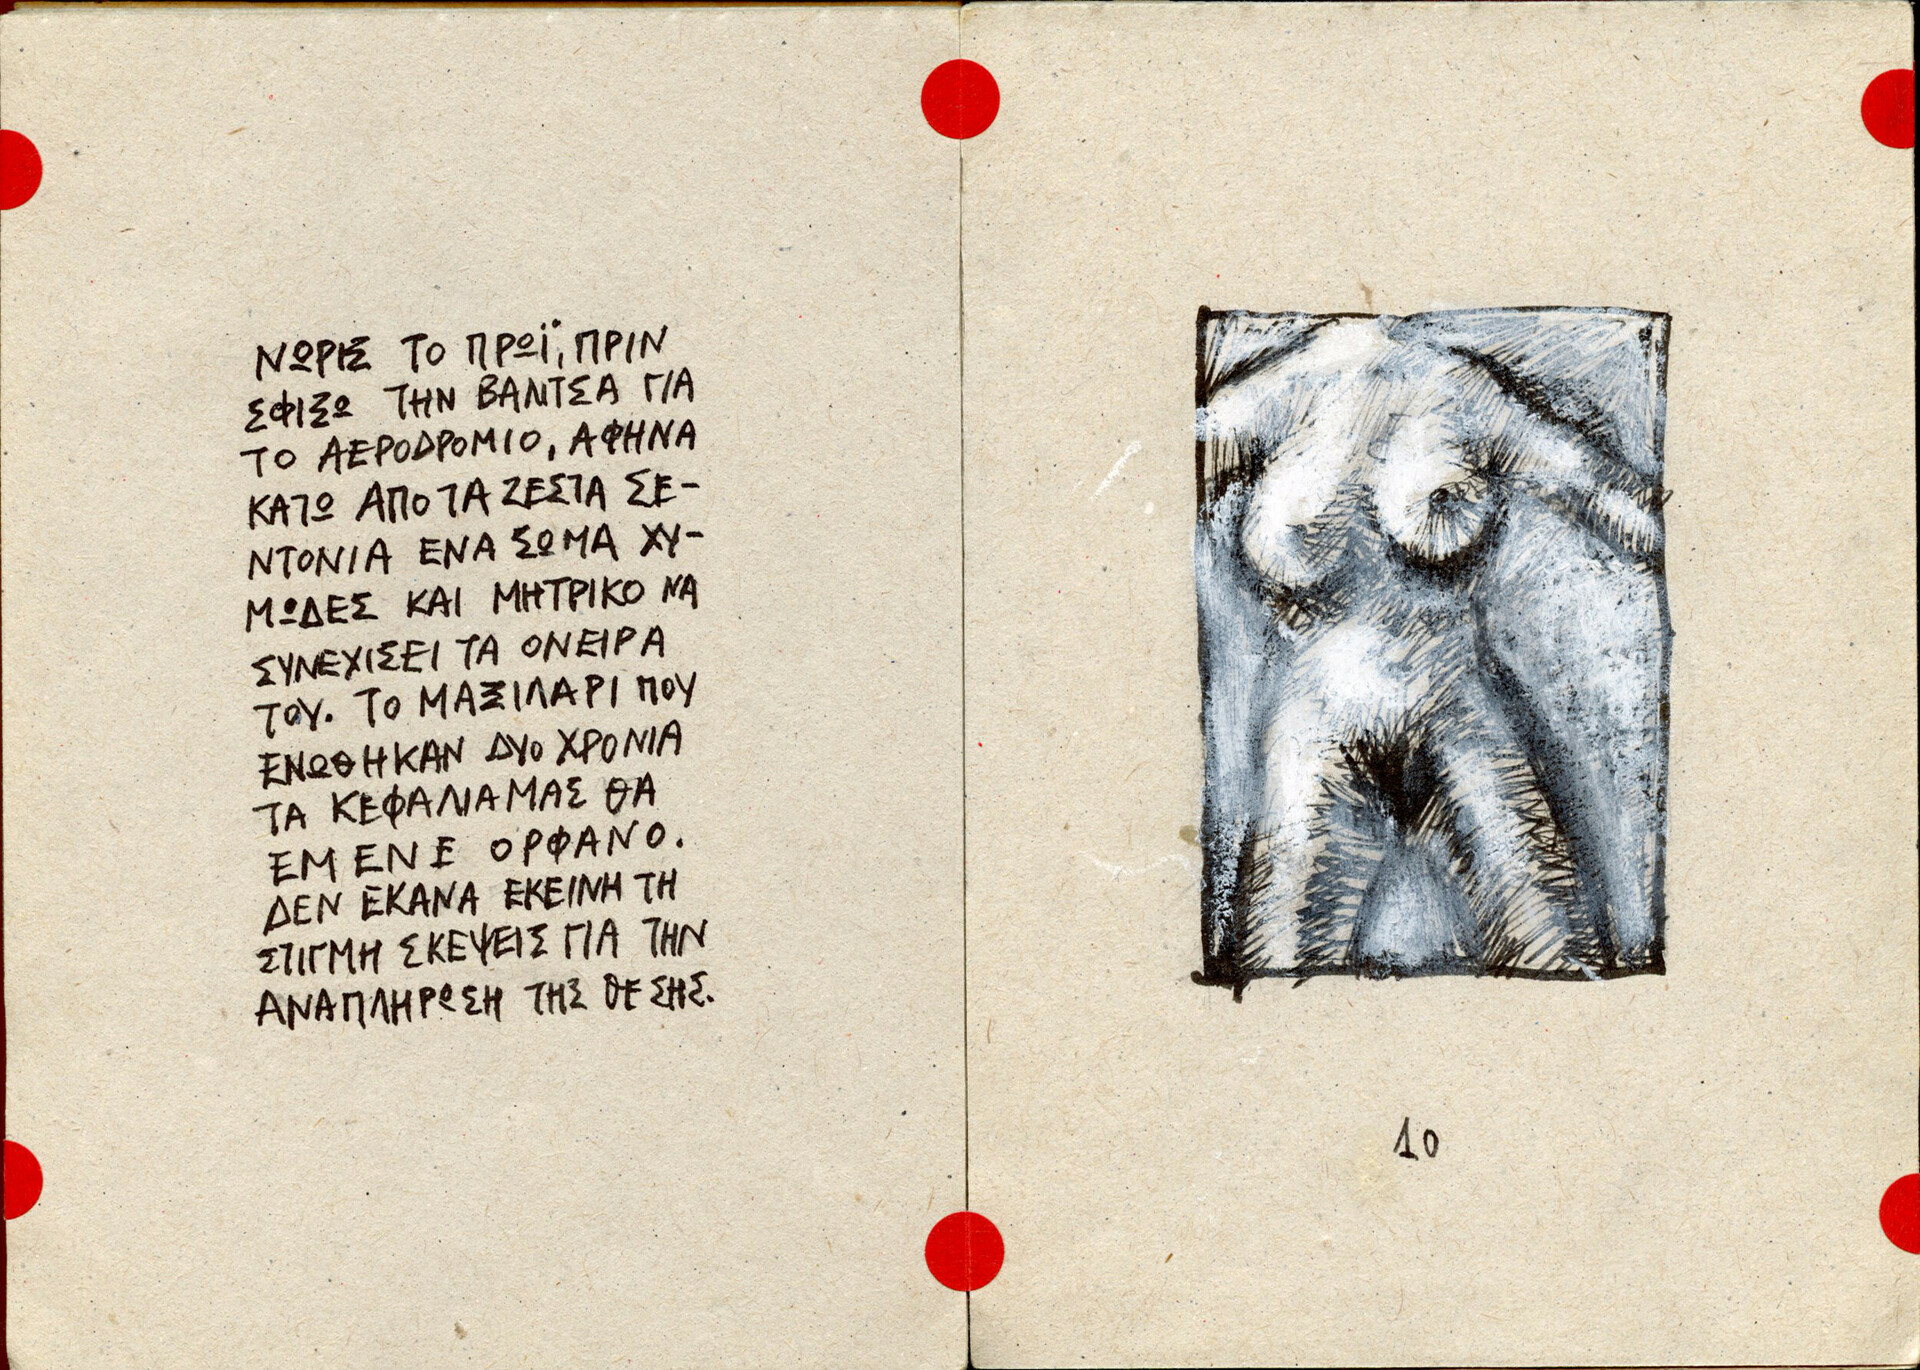 ΝΩΡΙΣ ΤΟ ΠΡΩΪ, ΠΡΙΝ
ΣΦΙΞΩ ΤΗΝ ΒΑΛΙΤΣΑ ΓΙΑ
ΤΟ ΑΕΡΟΔΡΟΜΙΟ, ΑΦΗΝΑ
ΚΑΤΩ ΑΠΟ ΤΑ ΖΕΣΤΑ ΣΕ-
ΝΤΟΝΙΑ ΕΝΑ ΣΩΜΑ ΧΥ-
ΜΩΔΕΣ ΚΑΙ ΜΗΤΡΙΚΟ ΝΑ
ΣΥΝΕΧΙΣΕΙ ΤΑ ΟΝΕΙΡΑ
ΤΟΥ. ΤΟ ΜΑΞΙΛΑΡΙ ΠΟΥ
ΕΝΩΘΗΚΑΝ ΔΥΟ ΧΡΟΝΙΑ
ΤΑ ΚΕΦΑΛΙΑ ΜΑΣ ΘΑ
ΕΜΕΝΕ ΟΡΦΑΝΟ.
ΔΕΝ ΕΚΑΝΑ ΕΚΕΙΝΗ ΤΗ
ΣΤΙΓΜΗ ΣΚΕΨΕΙΣ ΓΙΑ ΤΗΝ
ΑΝΑΠΛΗΡΩΣΗ ΤΗΣ ΘΕΣΗΣ.
10